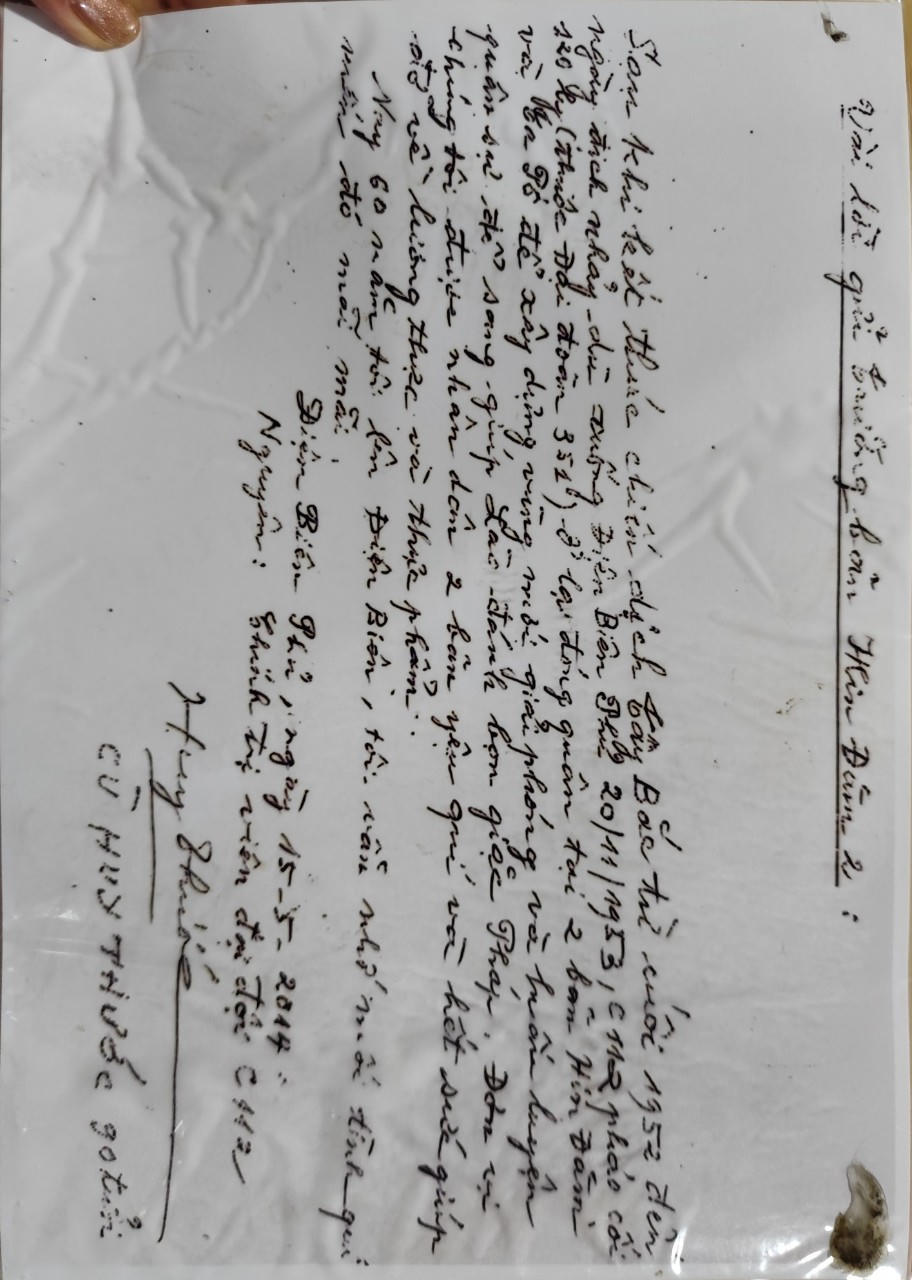 Vài lời gửi trưởng bản Hin Đăm 2 :
Sau khi kết thúc chiến dịch Tây Bắc từ cuối 1952 đến
ngày địch nhảy dù xuống Điện Biên Phủ 20/11/1953, C112 pháo cối
120 ly (thuộc Đại đoàn 351) ở lại đóng quân tại 2 bản Hin Đăm
và Pe để xây dựng vùng mới giải phóng và huấn luyện
quân sự để sang giúp Lào đánh bọn giặc Pháp. Đơn vị
chúng tôi được nhân dân 2 bản yêu quí và hết sức giúp
đỡ về lương thực và thực phẩm.
Nay 60 năm tôi lên Điện Biên, tôi vẫn nhớ mối tình quí
mến đó mãi mãi.
Điện Biên Phủ, ngày 15-5-2014.
Nguyên: Chính trị viên đại đội C112
Huy Thước
CÙ HUY THƯỚC 90 tuổi